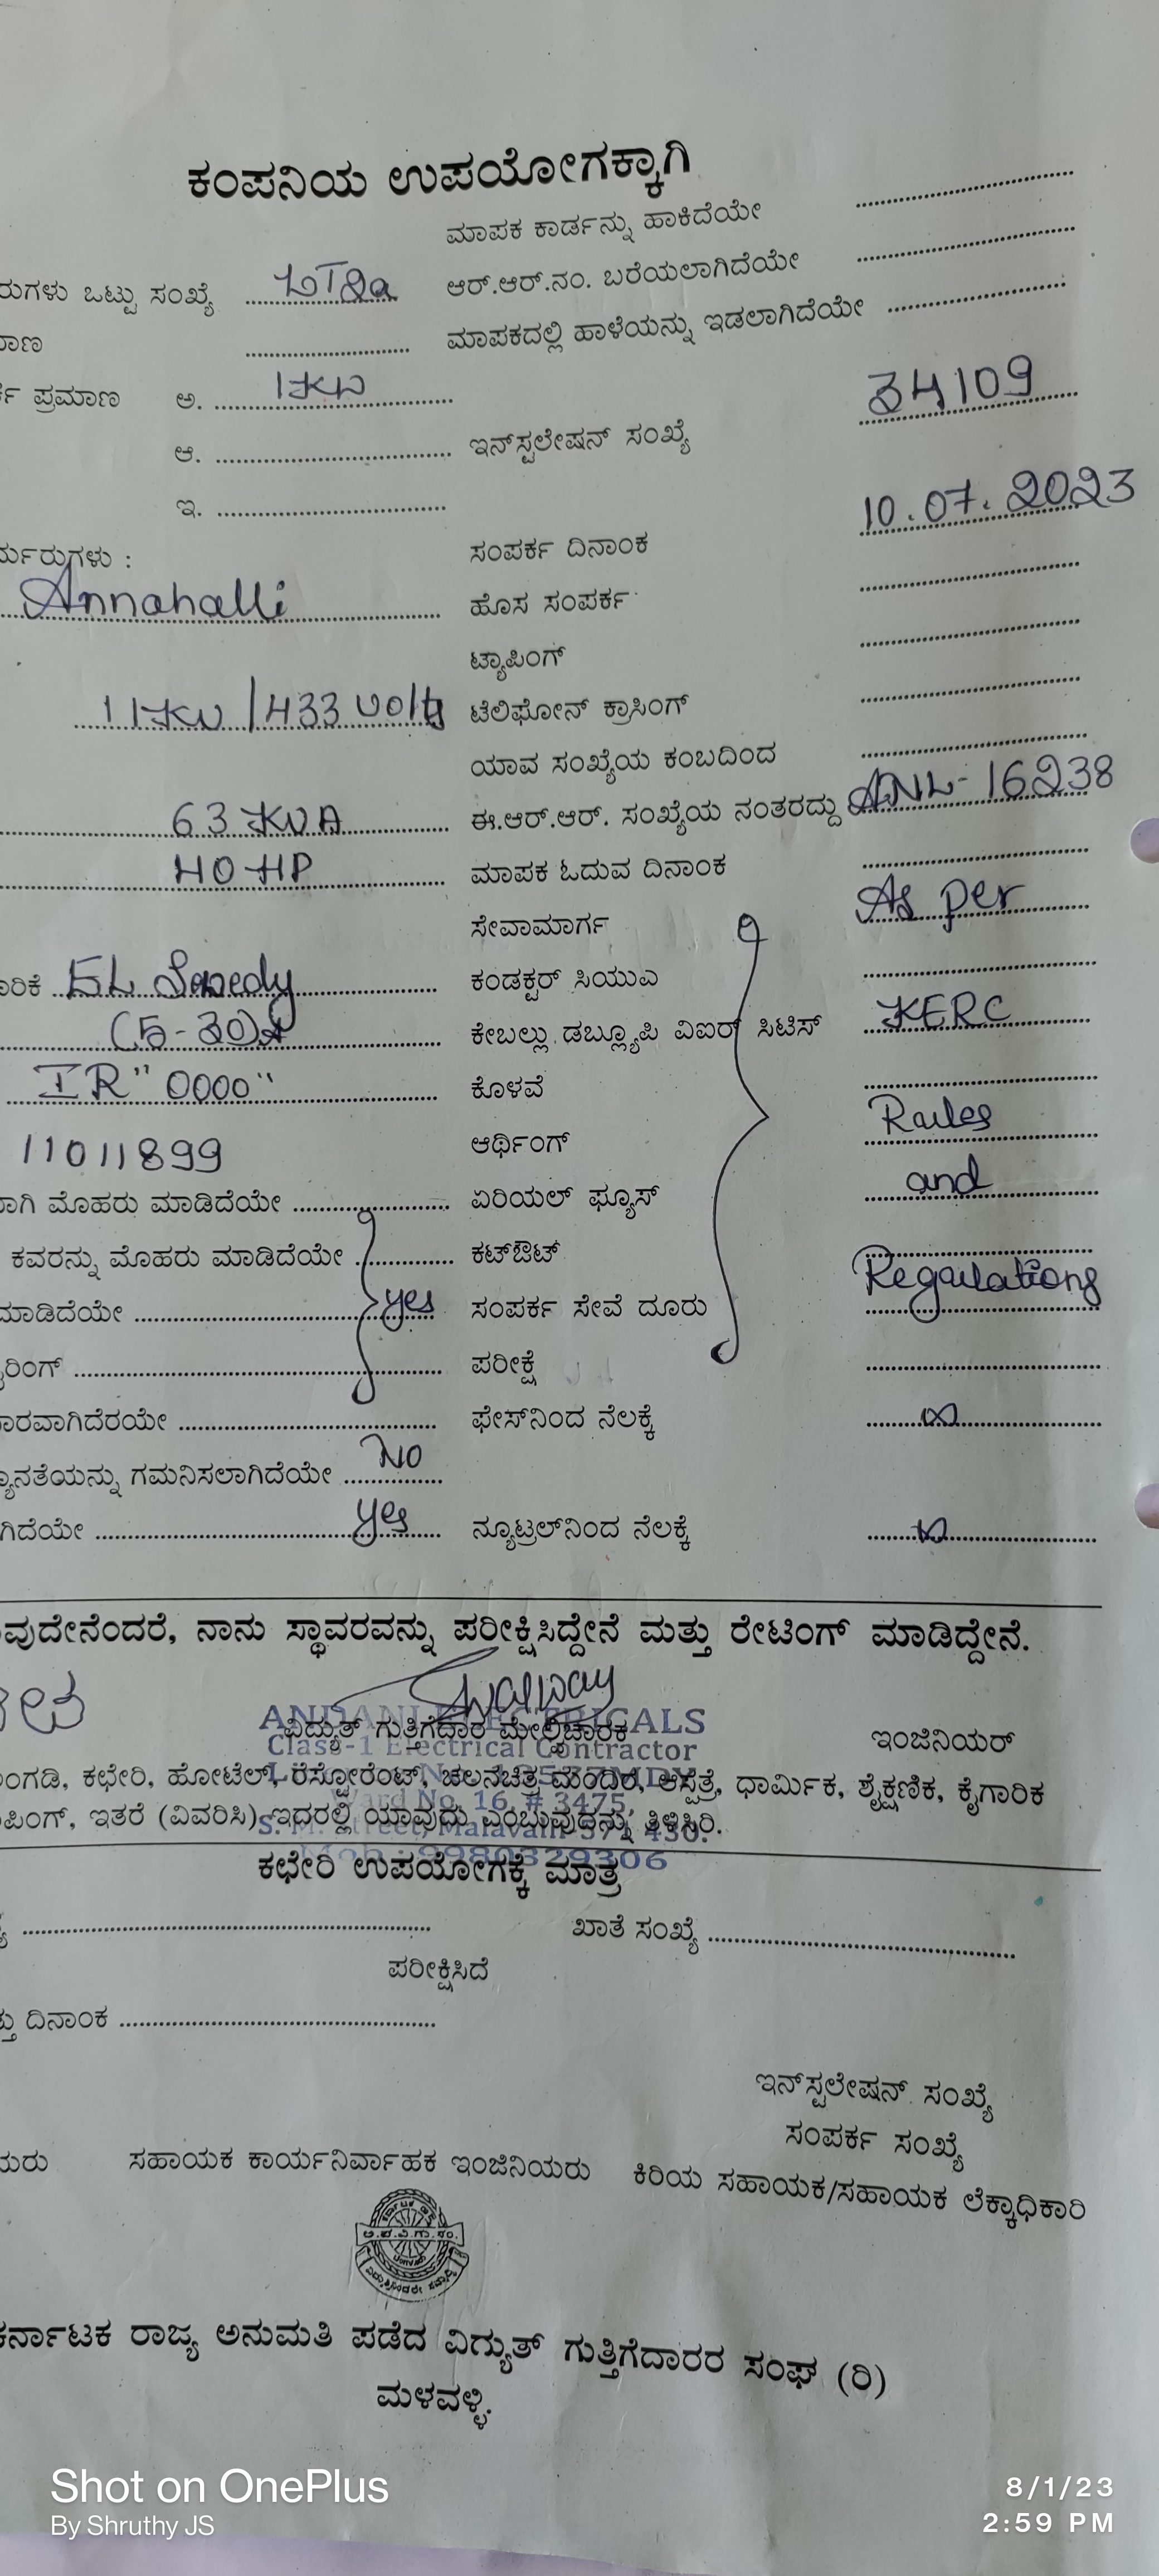 ಕಂಪನಿಯ ಉಪಯೋಗಕ್ಕಾಗಿ
ಮಾಪಕ ಕಾರ್ಡನ್ನು ಹಾಕಿದೆಯೇ ....................
ರುಗಳು ಒಟ್ಟು ಸಂಖ್ಯೆ LT2a ಆರ್.ಆರ್.ನಂ. ಬರೆಯಲಾಗಿದೆಯೇ ....................
ಮಾಣ .................... ಮಾಪಕದಲ್ಲಿ ಹಾಳೆಯನ್ನು ಇಡಲಾಗಿದೆಯೇ ....................
ಕ ಪ್ರಮಾಣ ಅ. 1KW 34109
ಆ. .................... ಇನ್‌ಸ್ಟಲೇಷನ್ ಸಂಖ್ಯೆ
ಇ. .................... 10.07.2023
ರ್ಯರುಗಳು : ಸಂಪರ್ಕ ದಿನಾಂಕ
Annahalli ಹೊಸ ಸಂಪರ್ಕ ....................
ಟ್ಯಾಪಿಂಗ್ ....................
11KV/433 volts ಟೆಲಿಫೋನ್ ಕ್ರಾಸಿಂಗ್ ....................
ಯಾವ ಸಂಖ್ಯೆಯ ಕಂಬದಿಂದ ....................
63 KVA ಈ.ಆರ್.ಆರ್. ಸಂಖ್ಯೆಯ ನಂತರದ್ದು ANL-16238
40 HP ಮಾಪಕ ಓದುವ ದಿನಾಂಕ ....................
ಸೇವಾಮಾರ್ಗ As per
ರಿಕೆ ಕಂಡಕ್ಟರ್ ಸಿಯುಎ ....................
(5-30)A ಕೇಬಲ್ಲು ಡಬ್ಲ್ಯೂಪಿ ವಿಐರ್ ಸಿಟಿಸ್ KERC
IR "0000" ಕೊಳವೆ ....................
11011899 ಆರ್ಥಿಂಗ್ Rules
ಾಗಿ ಮೊಹರು ಮಾಡಿದೆಯೇ .................... ಏರಿಯಲ್ ಫ್ಯೂಸ್ and
ಕವರನ್ನು ಮೊಹರು ಮಾಡಿದೆಯೇ .................... ಕಟ್‌ಔಟ್ ....................
ಮಾಡಿದೆಯೇ .................... yes ಸಂಪರ್ಕ ಸೇವೆ ದೂರು Regulations
ರಿಂಗ್ .................... ಪರೀಕ್ಷೆ ....................
ಾರವಾಗಿದೆರಯೇ .................... ಫೇಸ್‌ನಿಂದ ನೆಲಕ್ಕೆ ∞
ನ್ಯೂನತೆಯನ್ನು ಗಮನಿಸಲಾಗಿದೆಯೇ NO
ಗಿದೆಯೇ yes ನ್ಯೂಟ್ರಲ್‌ನಿಂದ ನೆಲಕ್ಕೆ
ವುದೇನೆಂದರೆ, ನಾನು ಸ್ಥಾವರವನ್ನು ಪರೀಕ್ಷಿಸಿದ್ದೇನೆ ಮತ್ತು ರೇಟಿಂಗ್ ಮಾಡಿದ್ದೇನೆ.
ವಿದ್ಯುತ್ ಗುತ್ತಿಗೆದಾರ ಮೇಲ್ವಿಚಾರಕ ಇಂಜಿನಿಯರ್
ELECTRICALS
Class-1 Electrical Contractor
ಂಗಡಿ, ಕಛೇರಿ, ಹೋಟೆಲ್, ರೆಸ್ಟೋರೆಂಟ್, ಚಲನಚಿತ್ರ ಮಂದಿರ, ಆಸ್ಪತ್ರೆ, ಧಾರ್ಮಿಕ, ಶೈಕ್ಷಣಿಕ, ಕೈಗಾರಿಕ
Ward No. 16, # 3475,
ಪಿಂಗ್, ಇತರೆ (ವಿವರಿಸಿ) ಇದರಲ್ಲಿ ಯಾವುದು ಎಂಬುವುದನ್ನು ತಿಳಿಸಿರಿ.
ಕಛೇರಿ ಉಪಯೋಗಕ್ಕೆ ಮಾತ್ರ
.................... ಖಾತೆ ಸಂಖ್ಯೆ ....................
ಪರೀಕ್ಷಿಸಿದೆ
ತ್ತು ದಿನಾಂಕ ....................
ಇನ್‌ಸ್ಟಲೇಷನ್ ಸಂಖ್ಯೆ
ಸಂಪರ್ಕ ಸಂಖ್ಯೆ
ಯರು ಸಹಾಯಕ ಕಾರ್ಯನಿರ್ವಾಹಕ ಇಂಜಿನಿಯರು ಕಿರಿಯ ಸಹಾಯಕ/ಸಹಾಯಕ ಲೆಕ್ಕಾಧಿಕಾರಿ
ಕರ್ನಾಟಕ ರಾಜ್ಯ ಅನುಮತಿ ಪಡೆದ ವಿದ್ಯುತ್ ಗುತ್ತಿಗೆದಾರರ ಸಂಘ (ರಿ)
ಮಳವಳ್ಳಿ.
Shot on OnePlus
By Shruthy JS
8/1/23
2:59 PM